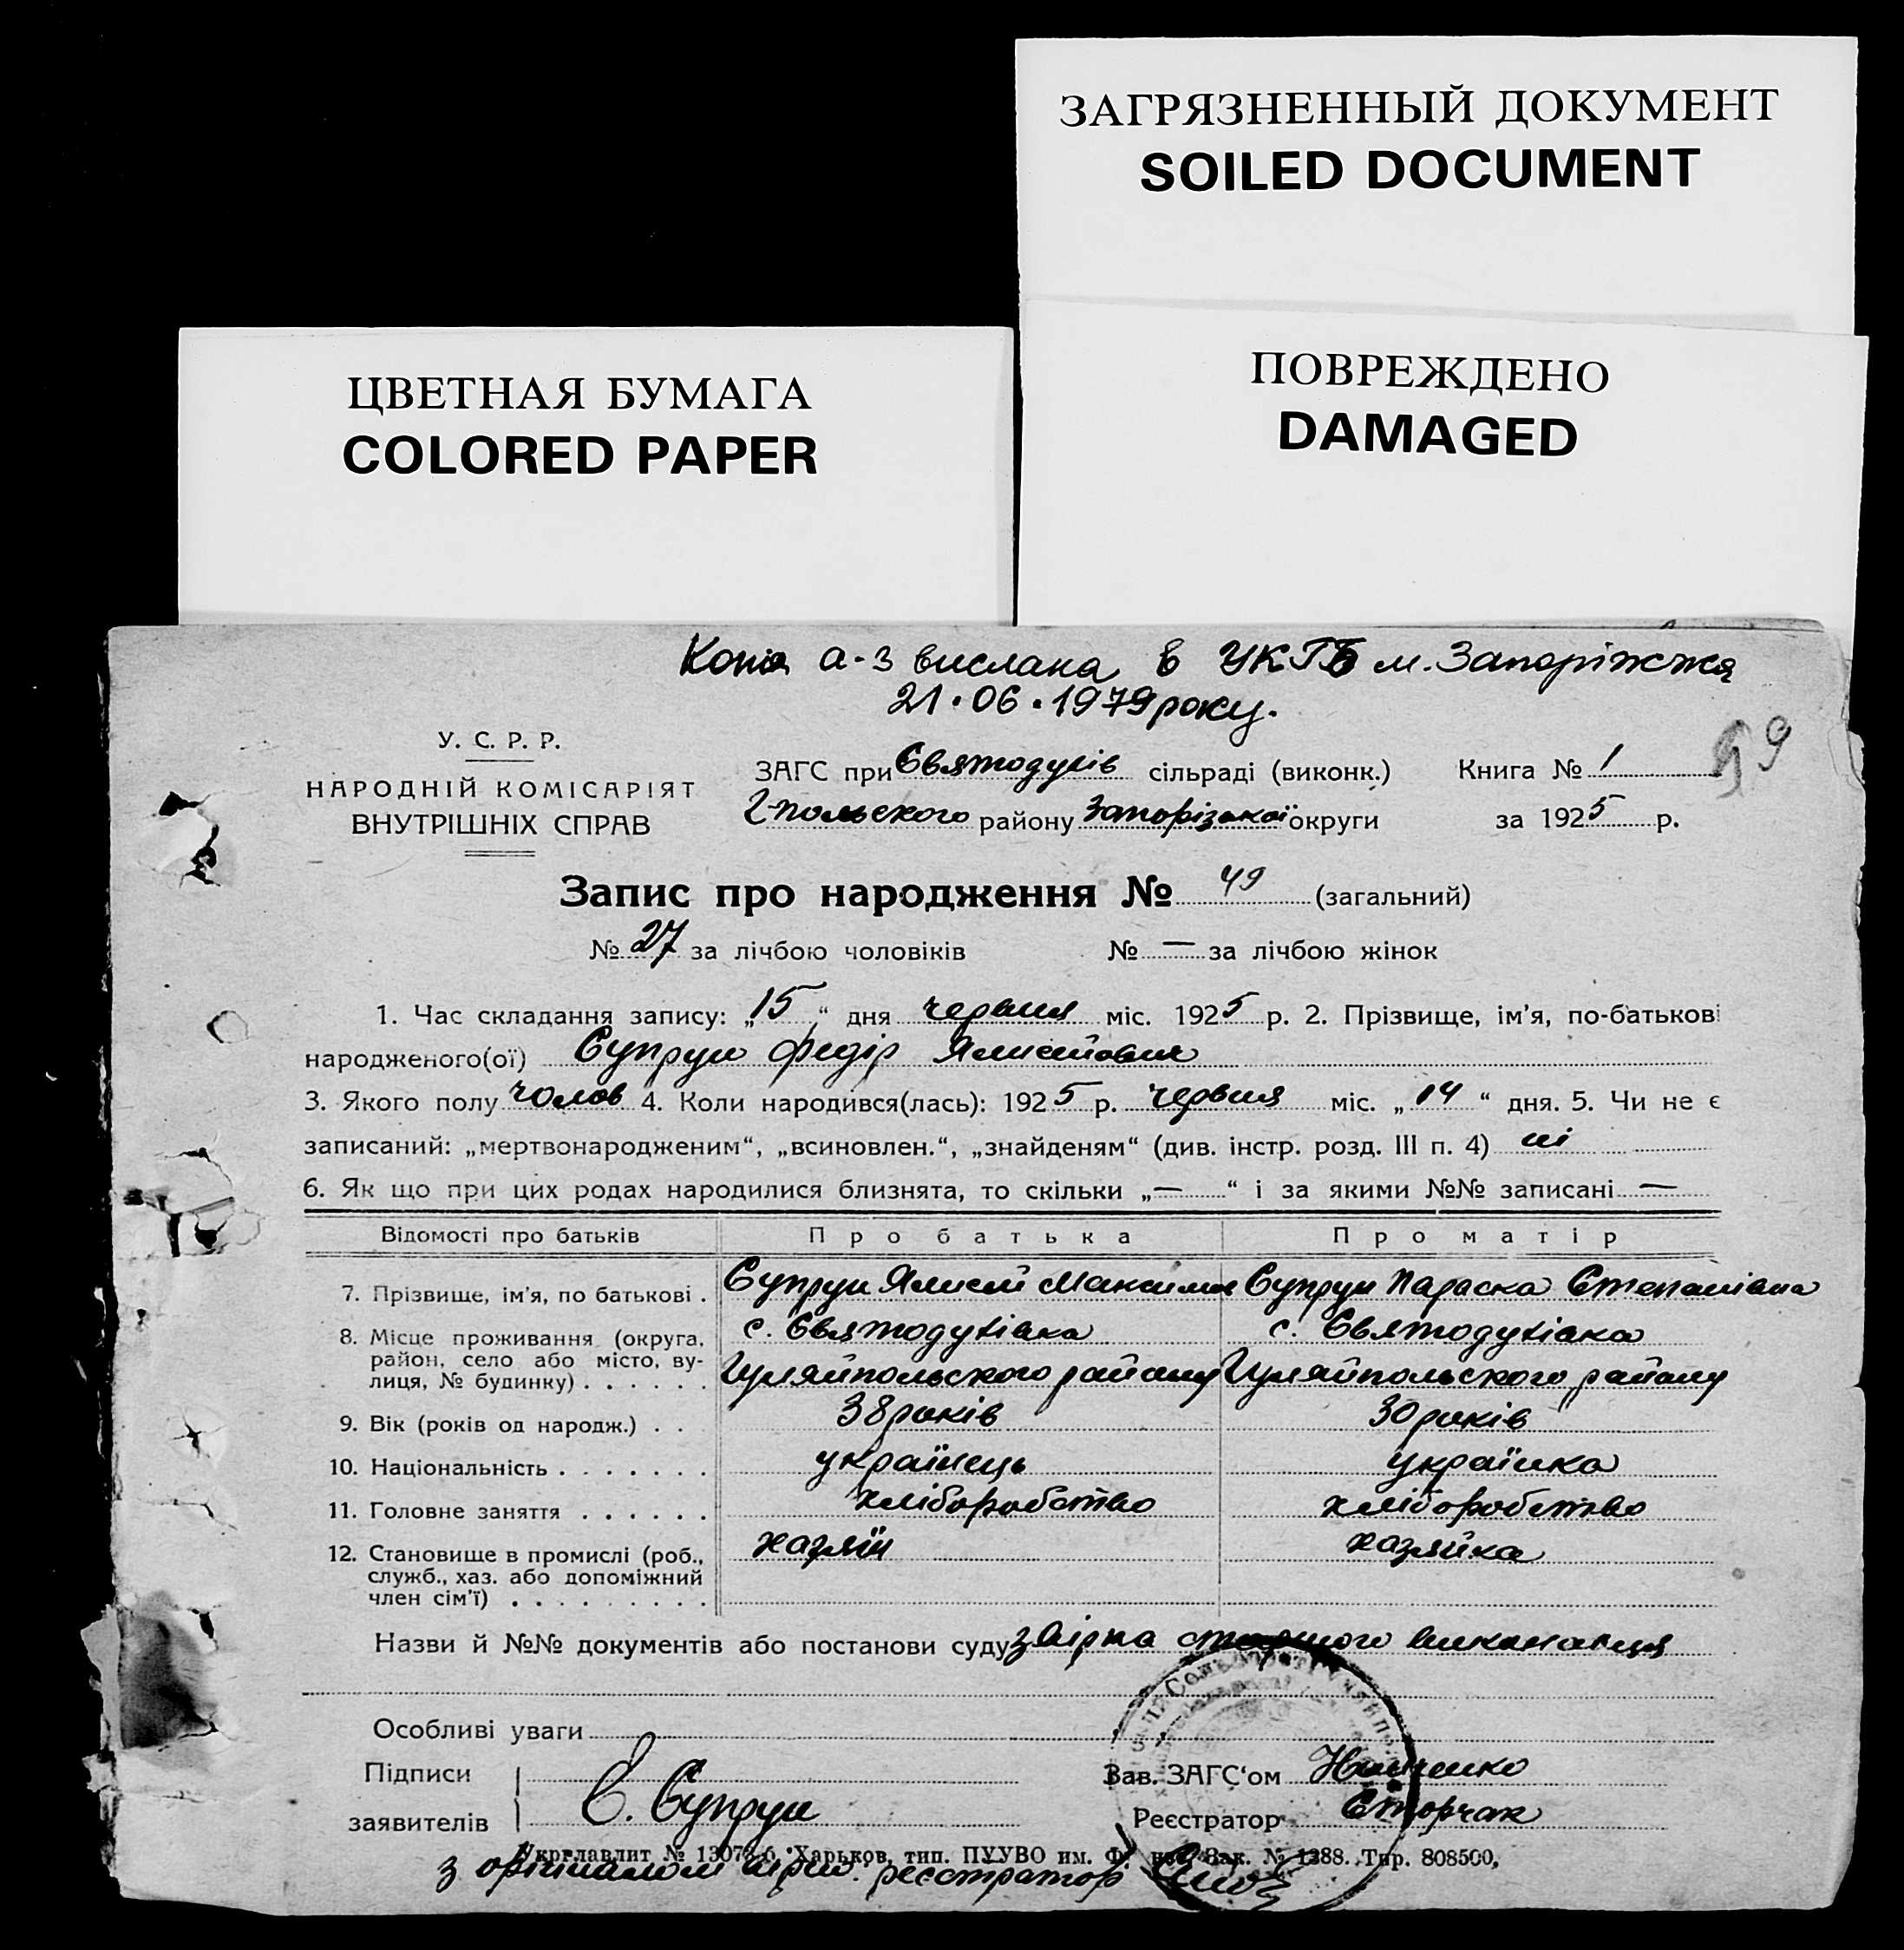 ЗАГРЯЗНЕННЫЙ ДОКУМЕНТ
SOILED DOCUMENT
ЦВЕТНАЯ БУМАГА
COLORED PAPER
ПОВРЕЖДЕНО
DAMAGED
Копія а-з вислана в УКГБ м. Запоріжжя
21.06.1979 року.
99
У. С. Р. Р.
НАРОДНІЙ КОМІСАРІЯТ
ВНУТРІШНІХ СПРАВ
ЗАГС при Святодухів сільраді (виконк.) Книга № 1
Г-Польского району Запорізької округи за 1925 р.
Запис про народження № 49 (загальний)
№ 27 за лічбою чоловіків № — за лічбою жінок
1. Час складання запису: „15“ дня червня міс. 1925 р. 2. Прізвище, ім'я, по-батькові
народженого(ої) Супрун Федір
3. Якого полу чолов 4. Коли народився(лась): 1925 р. червня міс. „14“ дня. 5. Чи не є
записаний: „мертвонародженим“, „всиновлен.“, „знайденям“ (див. інстр. розд. III п. 4) ні
6. Як що при цих родах народилися близнята, то скільки „—“ і за якими №№ записані —
Відомості про батьків Про батька Про матір
7. Прізвище, ім'я, по батькові . Супрун Максимов Супрун Параска Степанівна
8. Місце проживання (округа, район, село або місто, вулиця, № будинку) . . . . . . с. Святодухівка Гуляйпольского району с. Святодухівка Гуляйпольского району
9. Вік (років од народж.) . . 38 років 30 років
10. Національність . . . . . . . українець українка
11. Головне заняття . . . . . . хліборобство хліборобство
12. Становище в промислі (роб., служб., хаз. або допоміжний член сім'ї) . . . . . . . . . хазяїн хазяйка
Назви й №№ документів або постанови суду звірка старшого виконавця
Особливі уваги
Підписи
заявителів
Є. Супрун
Зав. ЗАГС'ом
Реєстратор Сторчак
Укрглавлит № 13078-б. Харьков, тип. ПУУВО им. Зак. № 1388. Тир. 808500,
з оригіналом вірно: реєстратор